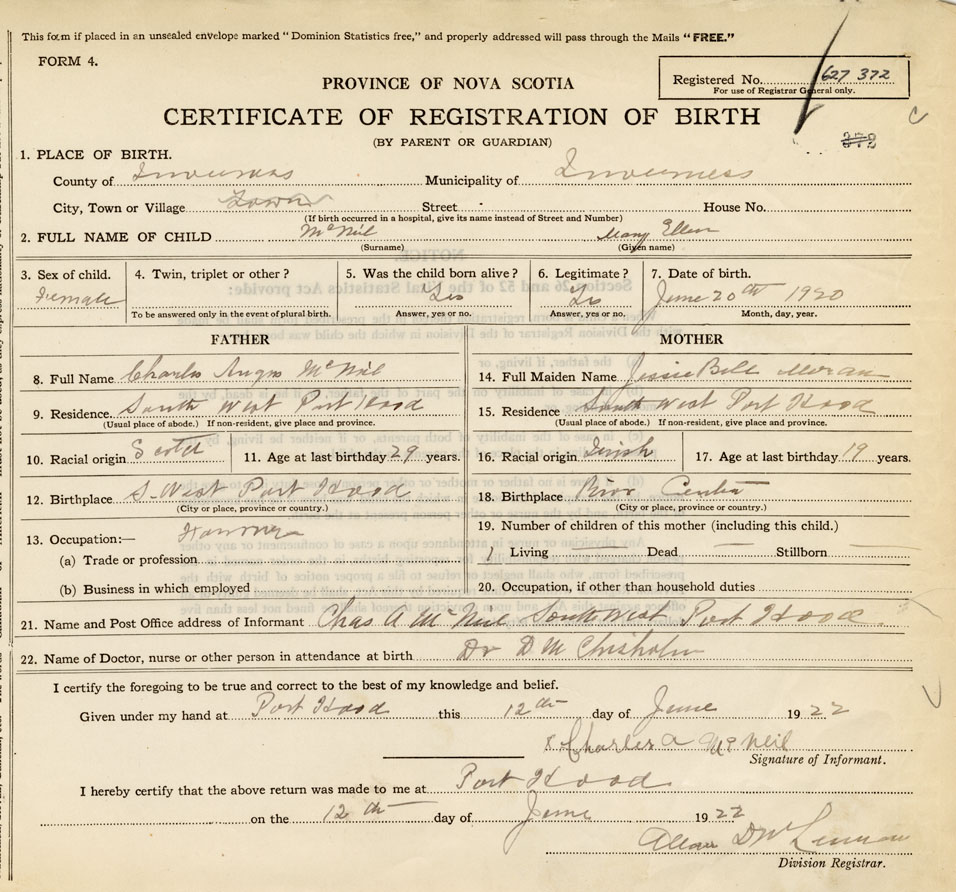 This form if placed in an unsealed envelope marked "Dominion Statistics free," and properly addressed will pass through the Mails "FREE."
FORM 4.
Registered No. 627 372
For use of Registrar General only.
PROVINCE OF NOVA SCOTIA
CERTIFICATE OF REGISTRATION OF BIRTH
(BY PARENT OR GUARDIAN)
372
1. PLACE OF BIRTH.
County of Inverness Municipality of Inverness
City, Town or Village Town Street House No.
(If birth occurred in a hospital, give its name instead of Street and Number)
2. FULL NAME OF CHILD McNeil Mary Ellen
(Surname) (Given name)
3. Sex of child. 4. Twin, triplet or other? 5. Was the child born alive? 6. Legitimate? 7. Date of birth.
Female Yes Yes June 20th 1920
To be answered only in the event of plural birth. Answer, yes or no. Answer, yes or no. Month, day, year.
FATHER MOTHER
8. Full Name Charles Angus McNeil 14. Full Maiden Name Jessie Bell Moran
9. Residence. South West Port Hood 15. Residence South West Port Hood
(Usual place of abode.) If non-resident, give place and province. (Usual place of abode.) If non-resident, give place and province.
10. Racial origin Scotch 11. Age at last birthday 29 years. 16. Racial origin Irish 17. Age at last birthday 19 years.
12. Birthplace S-West Port Hood 18. Birthplace River Center
(City or place, province or country.) (City or place, province or country.)
13. Occupation:— Farmer 19. Number of children of this mother (including this child.)
(a) Trade or profession 1 Living Dead Stillborn
(b) Business in which employed 20. Occupation, if other than household duties
21. Name and Post Office address of Informant Chas A McNeil Southwest Port Hood
22. Name of Doctor, nurse or other person in attendance at birth Dr D M Chisholm
I certify the foregoing to be true and correct to the best of my knowledge and belief.
Given under my hand at Port Hood this 12th day of June 1922
Charles A McNeil
Signature of Informant.
I hereby certify that the above return was made to me at Port Hood
on the 12th day of June 1922
Allan
Division Registrar.